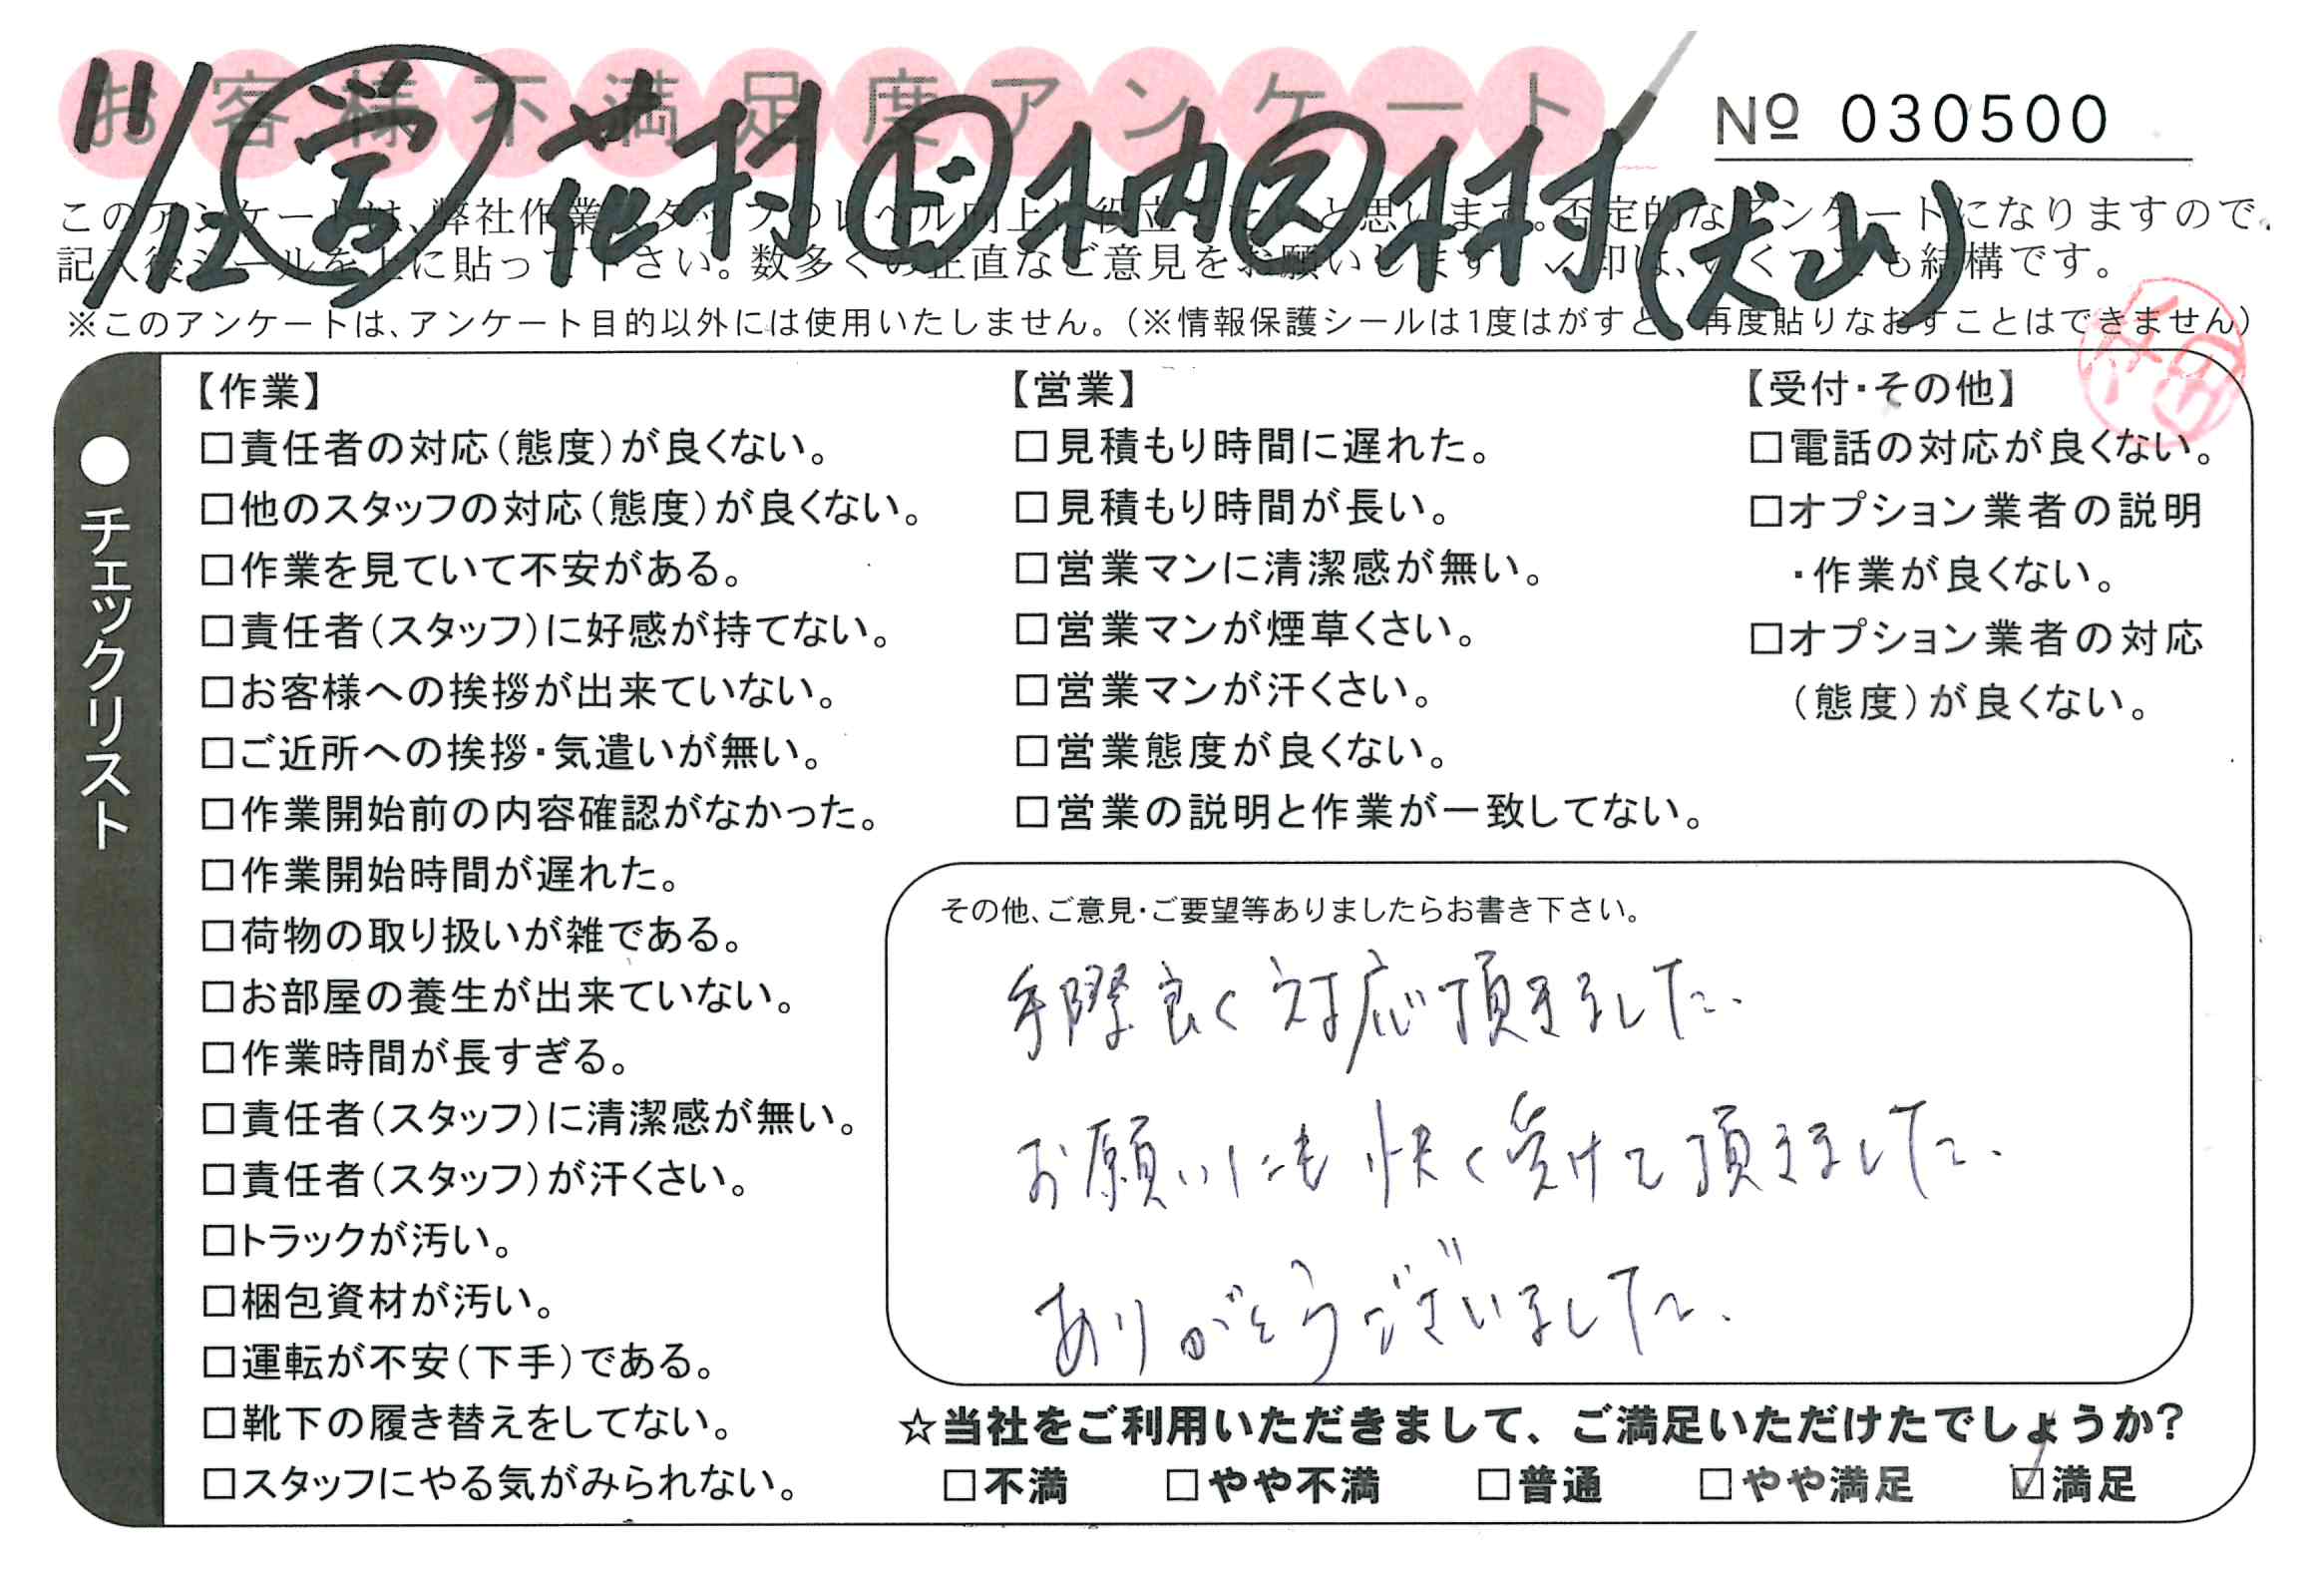 お客様不満足度アンケート
№ 030500
11/12 営 花村 ド 木内 ス 木村 (犬山)
このアンケートは、弊社作業スタッフのレベル向上に役立てたいと思います。否定的なアンケートになりますので、
記入後シールを上に貼って下さい。数多くの正直なご意見をお願いします。✓印は、なくても結構です。
※このアンケートは、アンケート目的以外には使用いたしません。（※情報保護シールは1度はがすと、再度貼りなおすことはできません）
●チェックリスト
【作業】
□責任者の対応（態度）が良くない。
□他のスタッフの対応（態度）が良くない。
□作業を見ていて不安がある。
□責任者（スタッフ）に好感が持てない。
□お客様への挨拶が出来ていない。
□ご近所への挨拶・気遣いが無い。
□作業開始前の内容確認がなかった。
□作業開始時間が遅れた。
□荷物の取り扱いが雑である。
□お部屋の養生が出来ていない。
□作業時間が長すぎる。
□責任者（スタッフ）に清潔感が無い。
□責任者（スタッフ）が汗くさい。
□トラックが汚い。
□梱包資材が汚い。
□運転が不安（下手）である。
□靴下の履き替えをしてない。
□スタッフにやる気がみられない。
【営業】
□見積もり時間に遅れた。
□見積もり時間が長い。
□営業マンに清潔感が無い。
□営業マンが煙草くさい。
□営業マンが汗くさい。
□営業態度が良くない。
□営業の説明と作業が一致してない。
【受付・その他】
□電話の対応が良くない。
□オプション業者の説明
・作業が良くない。
□オプション業者の対応
（態度）が良くない。
その他、ご意見・ご要望等ありましたらお書き下さい。
手際良く対応頂きました。
お願いにも快く受けて頂きました。
ありがとうございました。
☆当社をご利用いただきまして、ご満足いただけたでしょうか?
□不満 □やや不満 □普通 □やや満足 ☑満足